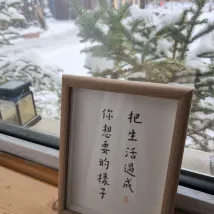 把生活過成
你想要的樣子